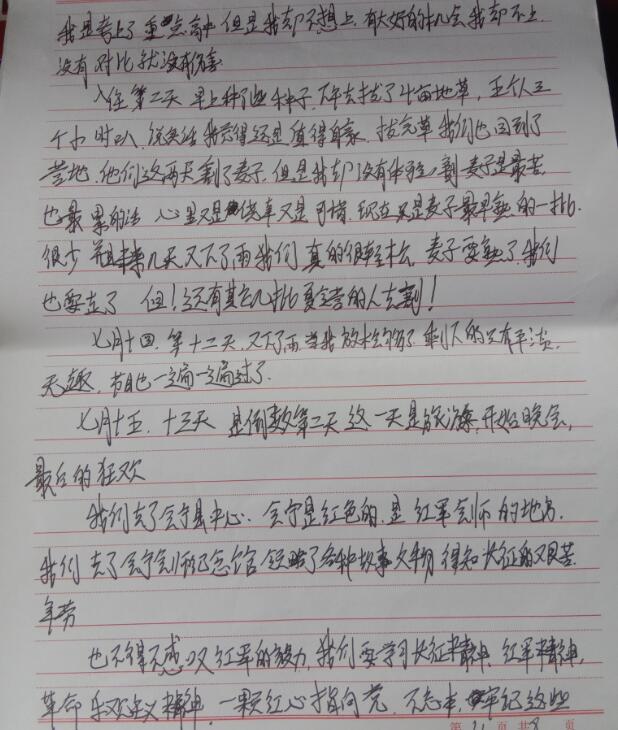 我是考上了重点高中但是我却不想上,有大好的机会我却不上
没有对比就没有伤害
入住第二天 早上种了些种子,下午去拔了4亩地草,五个人三
个小时以 说实话我觉得还是值得自豪 拔完草我们也回到了
营地.他们这两天割了麦子.但是我却没有体验,割麦子是最苦
也最累的活 心里又是侥幸又是可惜.现在只是麦子最早熟的一批
很少 而且未来几天又下了雨我们真的很轻松 麦子要熟了我们
也要走了 但!还有其它几批夏令营的人去割!
七月十四.第十二天.又下了雨.当我放松够了 剩下的只有平淡
无趣,节目也一遍一遍过了.
七月十五.十三天 是倒数第二天 这一天是 开始晚会,
最后的狂欢
我们去了会宁县中心.会宁是红色的.是红军会师的地方.
我们去了会宁会师纪念馆 领略了各种故事文物 得知长征的艰苦
年劳
也不得不感叹红军的毅力,我们要学习长征精神,红军精神,
革命乐观主义精神,一颗红心指向党,不忘本,牢记这些
第 页 共 8 页